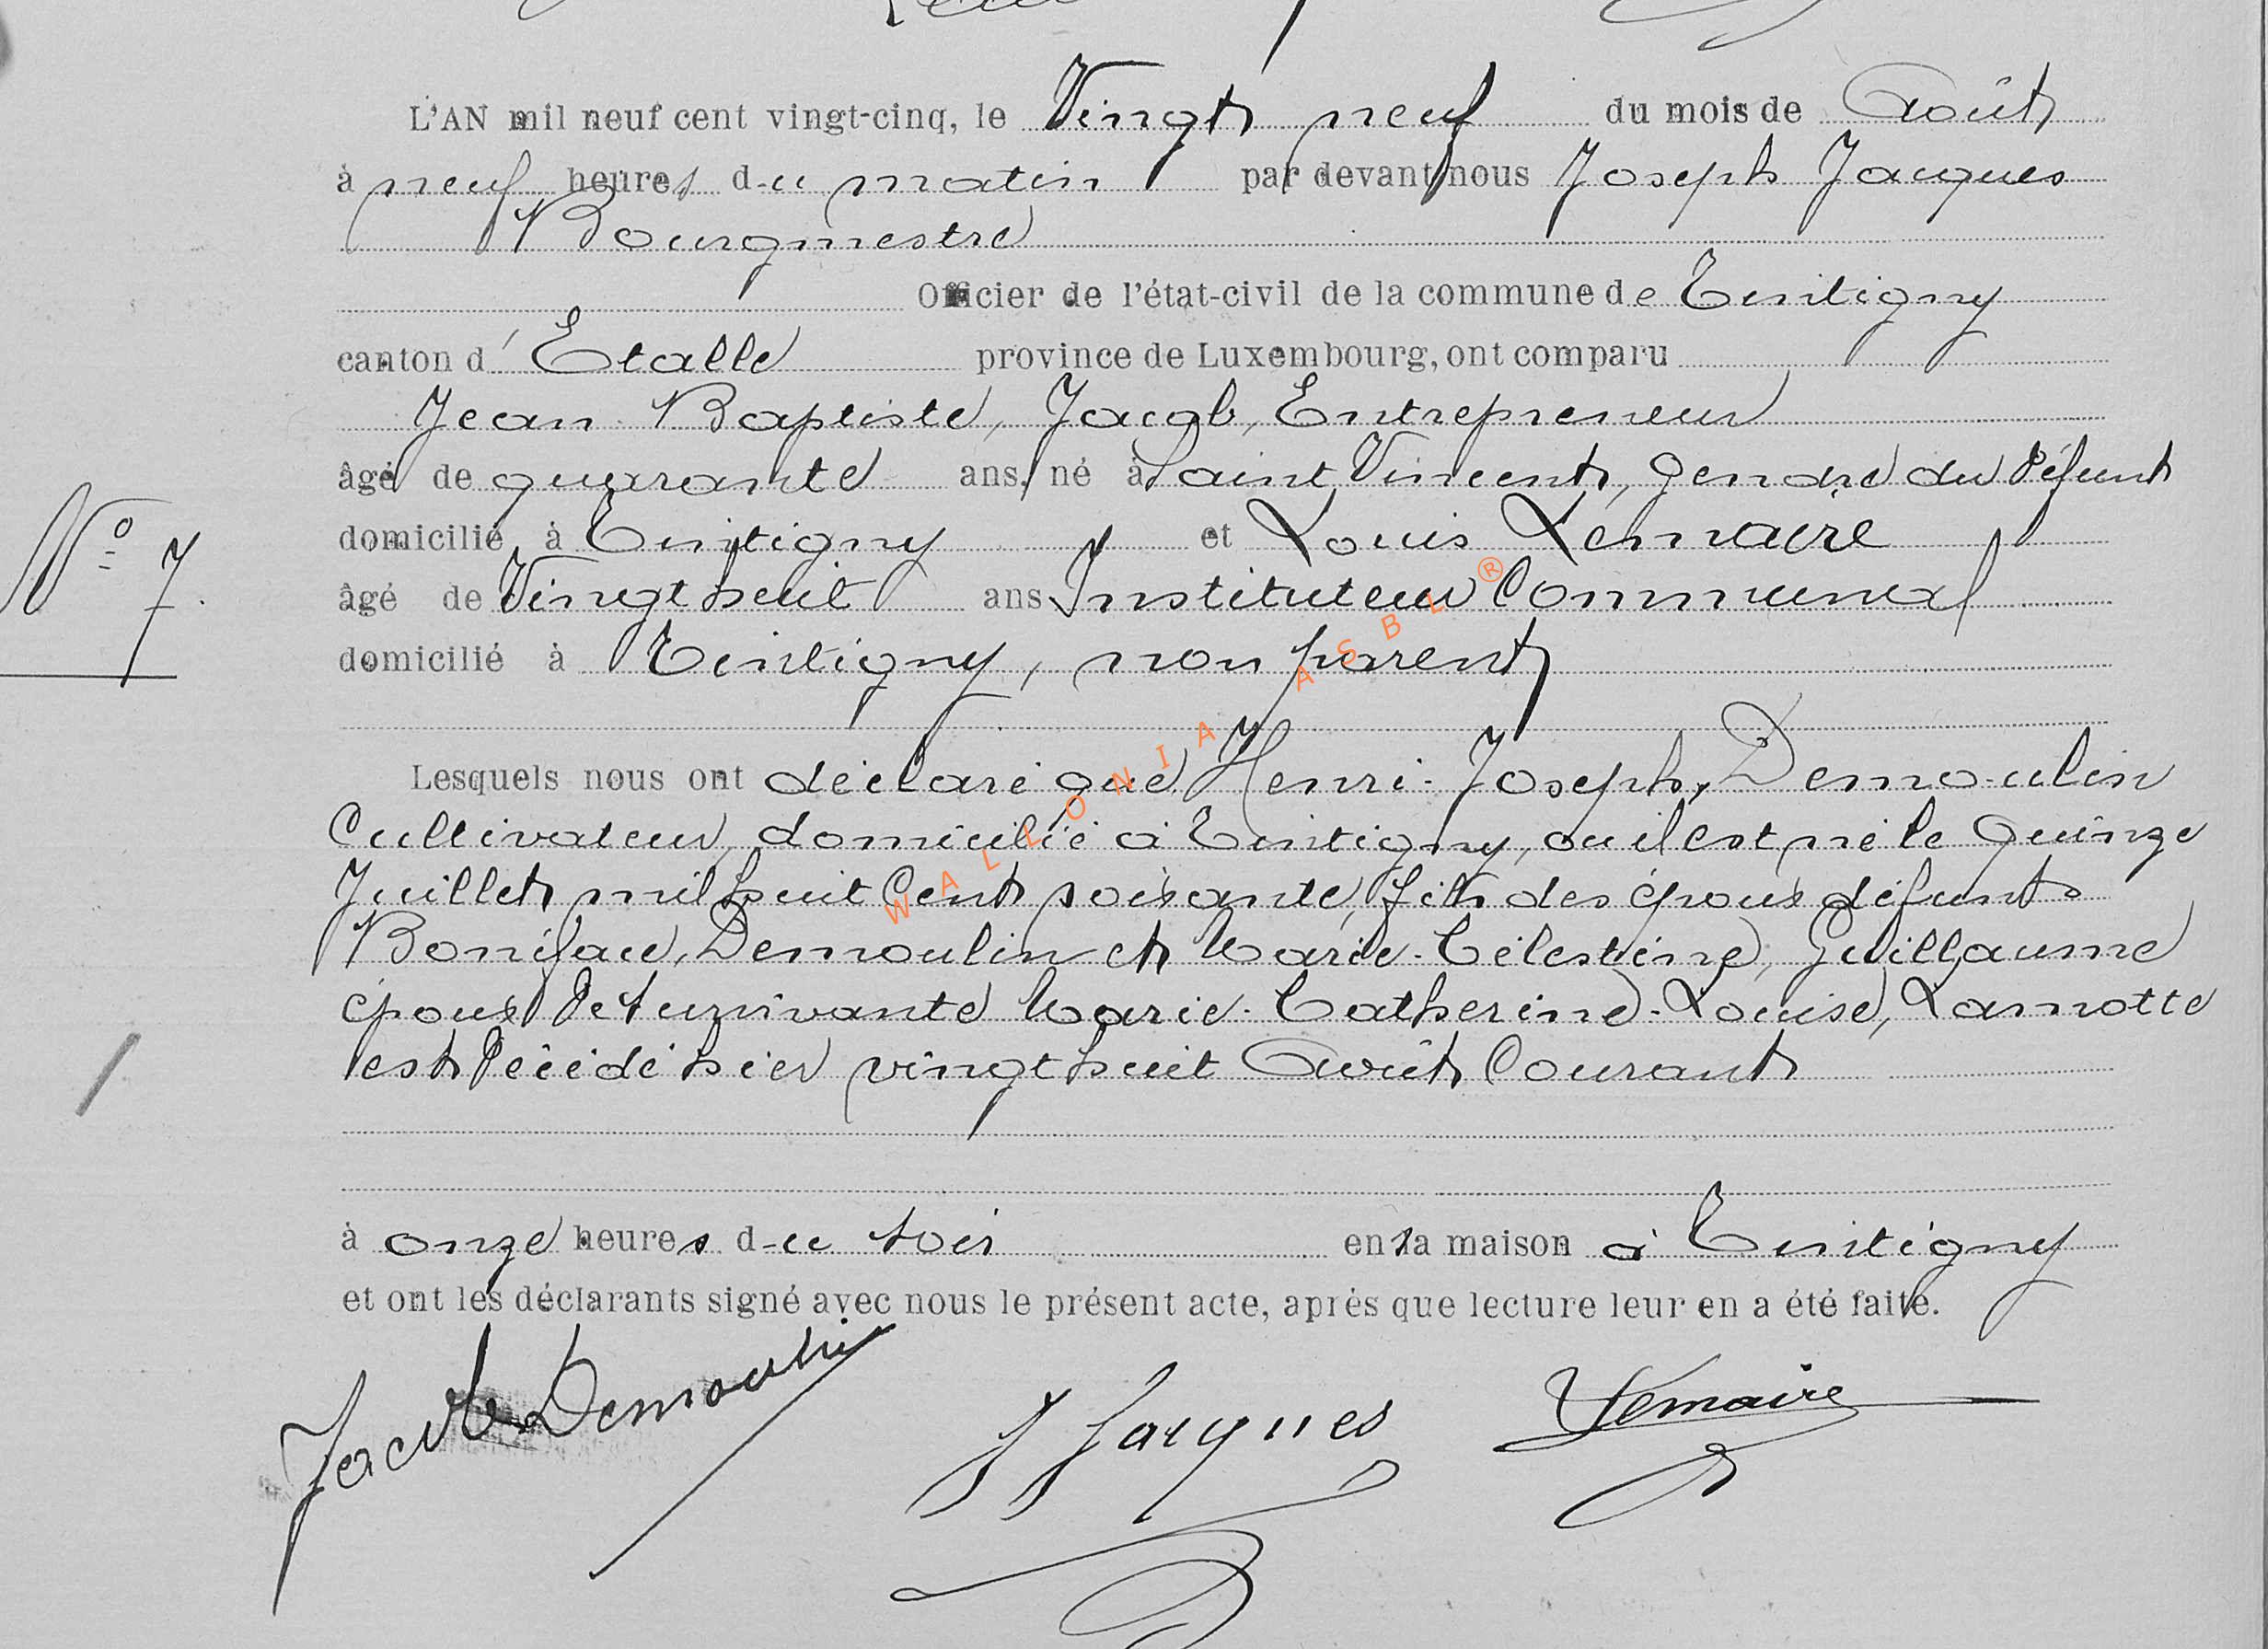 L'AN mil neuf cent vingt-cinq, le Vingt neuf du mois de Août
à neuf heures du matin par devant nous Joseph Jacques
Bourgmestre
Officier de l'état-civil de la commune de Tintigny
canton d'Etalle province de Luxembourg, ont comparu
Jean Baptiste, Jacob, Entrepreneur
âgé de quarante ans, né à Saint Vincent, gendre du défunt
N° 7.
domicilié à Tintigny et Louis Lemaire
âgé de Vingt huit ans Instituteur Communal
domicilié à Tintigny, non parent
Lesquels nous ont déclaré que Henri-Joseph, Demoulin
Cultivateur, domicilié à Tintigny, où il est né le quinze
Juillet mil huit Cent soixante, fils des époux défunts
Boniface, Demoulin et Marie-Célestine, Guillaume
époux de survivante Marie-Catherine-Louise, Lamotte
est décédé hier vingt huit Août Courant
à onze heures du soir en sa maison à Tintigny
et ont les déclarants signé avec nous le présent acte, après que lecture leur en a été faite.
Jacob Demoulin J Jacques Lemaire
WALLONIA ASBL ®